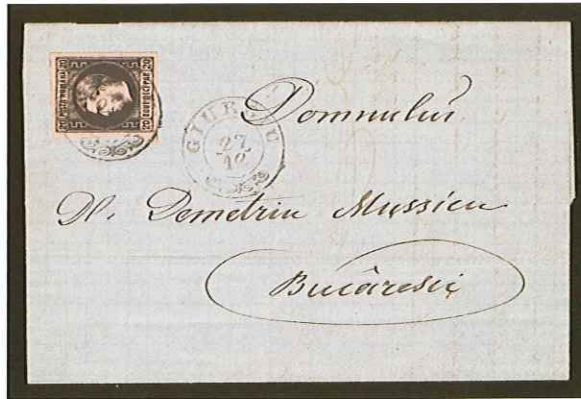 GIURGIU
27
12
Domnului
D. Demetriu Mussicu
Bucăresci